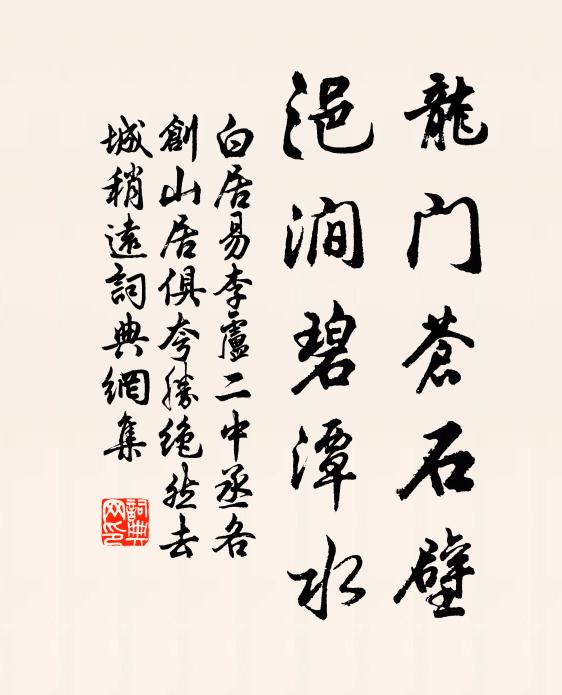 龍门蒼石壁
浥澗碧潭水
白居易李盧二中丞各
創山居俱夸勝绝然去
城稍遠詞典網集
詞典网印